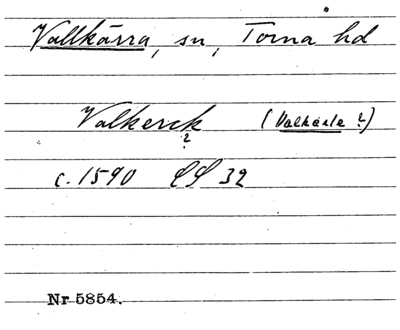 Vallkärra, sn, Torna hd
Valkerck (Valkärle ?)
?
c. 1590 LS 32
Nr 5854.